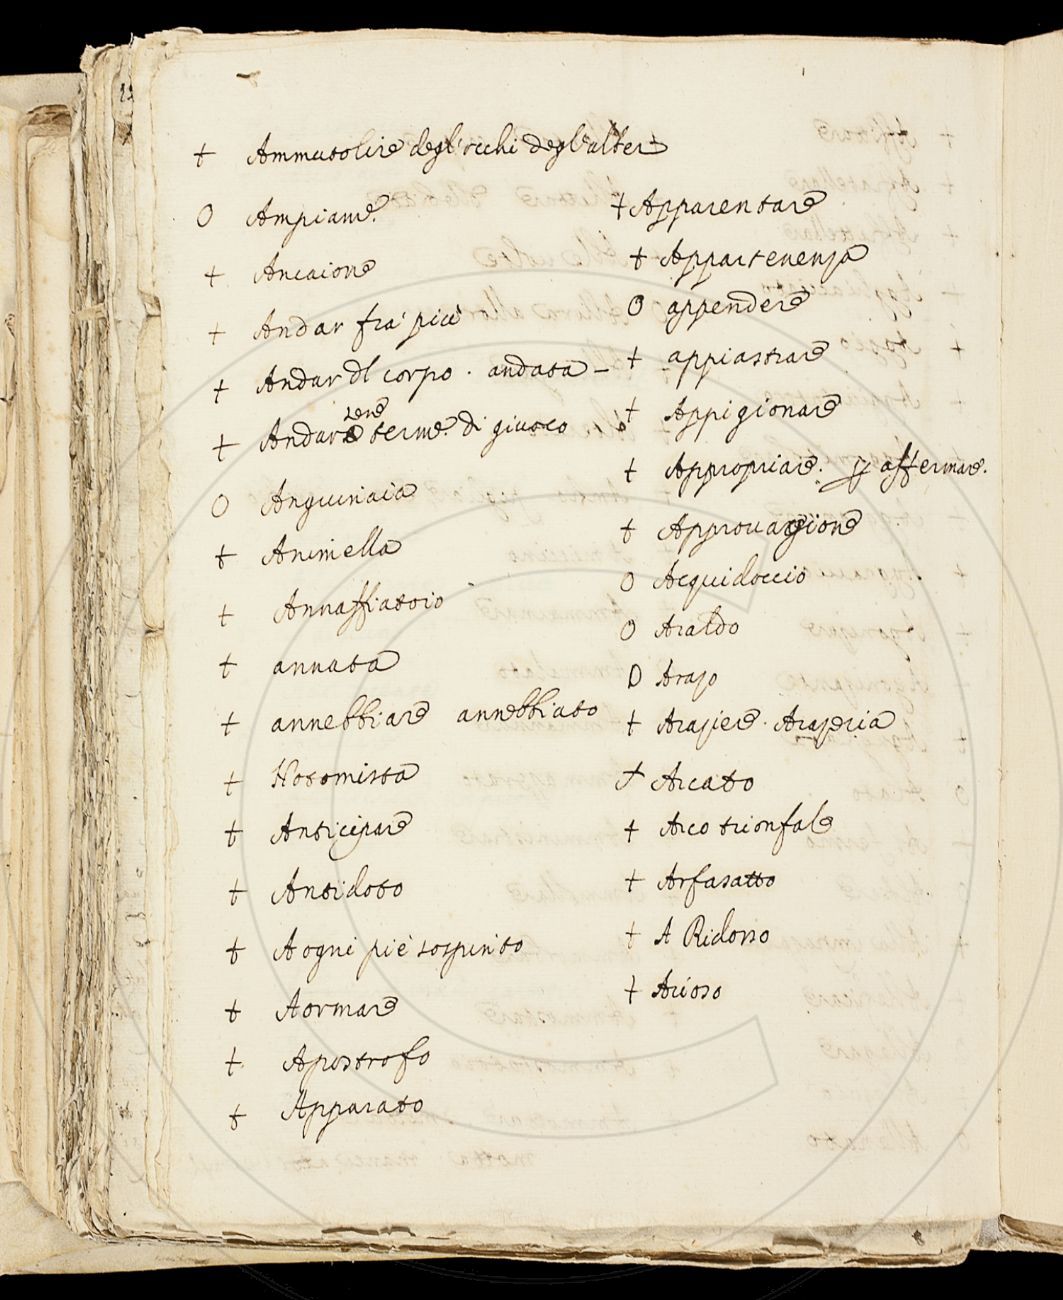 + Ammutolire degl'occhi degl'alberi
O Ampiamᵉ.
+ Ancaione
+ Andar fra più
+ Andar dl corpo. andata –
+ Andare termᵉ. di giuoco
O Anguinaia
+ Animella
+ Annaffiatoio
+ annata
+ annebbiare annebbiato
+ Notomista
+ Anticipare
+ Antidoto
+ A ogni piè sospinto
+ Aormare
+ Apostrofo
+ Apparato
+ Apparentare
+ Appartenenza
O appendere
+ appiastrare
+ Appigionare
+ Appropriare. affermare.
+ Approvazione
O Acquidoccio
O Araldo
O
+
+ Arcato
+ Arco trionfale
+ Arfasatto
+ A Ridosso
+ Arioso